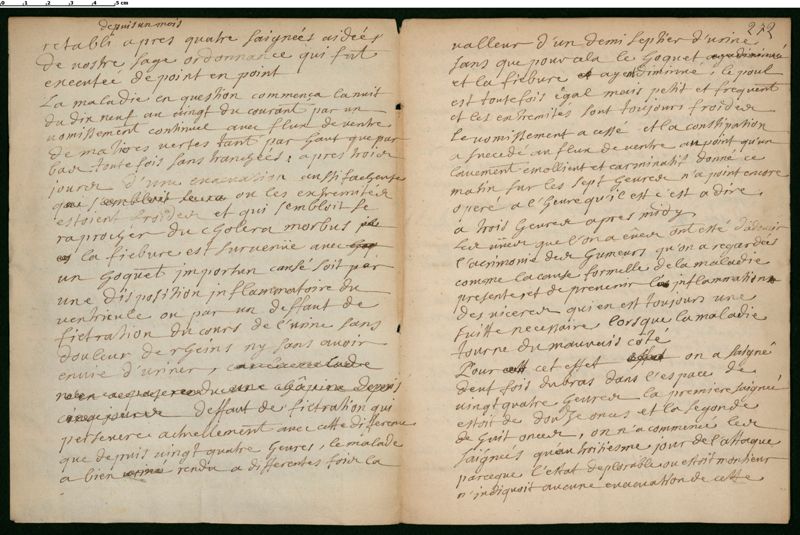 depuis un mois
retabli apres quatre saignées aidées
de vostre sage ordonnance qui fut
executée de point en point
La maladie en question commença la nuit
du dix neuf au vingt du courant par un
vomissement continuel avec flux de ventre
de matieres vertes tant par haut que par
bas toutefois sans tranchées; apres trois
jours d'une evacuation aussi fachense
que sembloit ou les extremites
estoient froides et qui sembloit se
raprocher du cholera morbus
la fiebure est survenüe avec
un hoquet importun causé soit par
une disposition inflammatoire du
ventricule ou par un deffaut de
fictration du cours de l'urine sans
douleur de rheins ny sans avoir
envie d'uriner,
une depuis
deffaut de fictration qui
persevere actuellement avec cette difference
que depuis vingt quatre heures, le malade
a bien rendu a differentes fois la
272
valleur d'un demi septier d'urine
sans que pour cela le hoquet
et la fiebure ayt diminüe; le poul
est toutefois egal mais petit et frequent
et les extremités sont toujours froides
Le vomissement a cessé et la constipation
a succedé au flux de ventre au point qu'un
lavement emollient et carminatif donné ce
matin sur les sept heures n'a point encore
operé a l'heure qu'il est c'est a dire
a trois heures apres midy
Les vües que l'on a eües ont esté d'adoucir
l'acrimonie des humeurs qu'on a regardés
comme la cause formelle de la maladie
presente et de prevenir les inflammations
des visceres qui en est toujours une
suitte necessaire lorsque la maladie
tourne du mauvais côté
Pour cet effet on a saigné
deux fois du bras dans l'espace de
vingt quatre heures la premiere saignée
estoit de douze onces et la segonde
de huit onces, on n'a commencé les
saignées qu'au troisiesme jour de l'attaque
parceque l'estat deplorable ou estoit monsieur
n'indiquoit aucune evacuation de cette